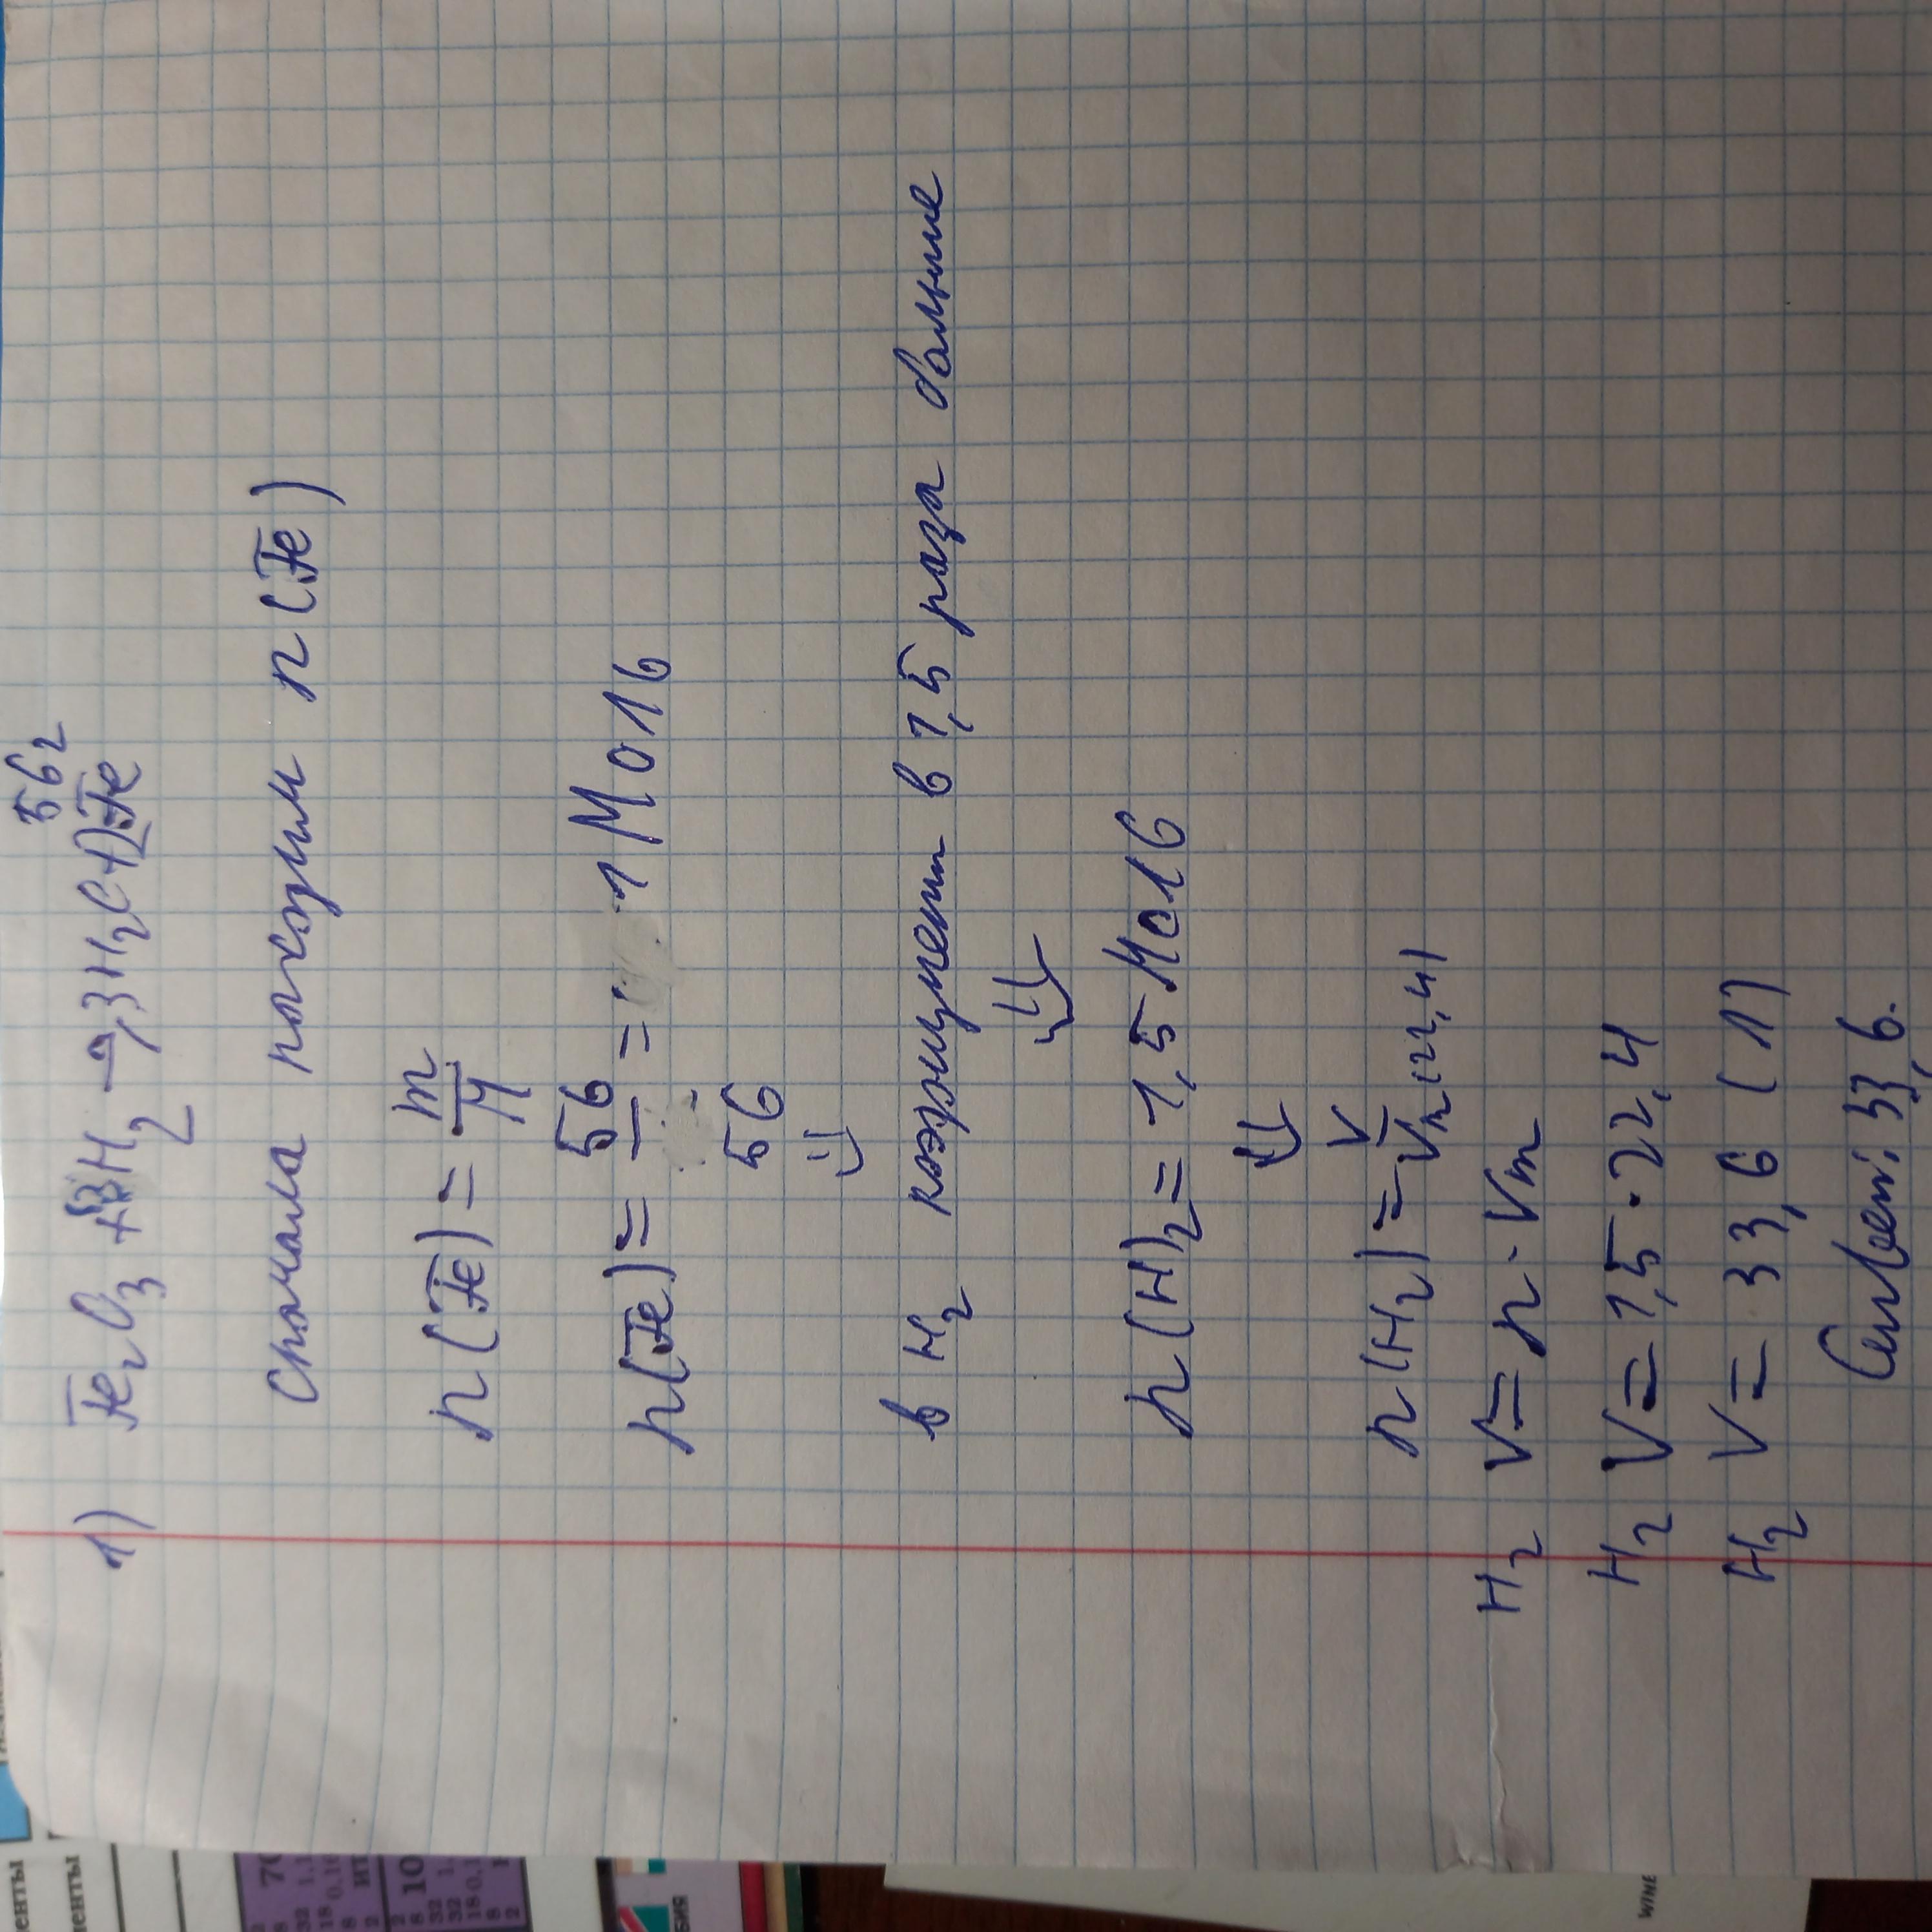 56г
1) Fe2O3 + 3H2 → 3H2O + 2Fe
Сначала находим n(Fe)
n(Fe) = m/M
n(Fe) = 56/56 = 1 Моль
⇓
в H2 коэфицент в 1,5 раза больше
⇓
n(H)2 = 1,5 Моль
⇓
n(H2) = V/Vm(22,4)
H2 V = n · Vm
H2 V = 1,5 · 22,4
H2 V = 33,6 (л)
Ответ: 33,6.
енты
менты
70
10
БИЯ
WINE